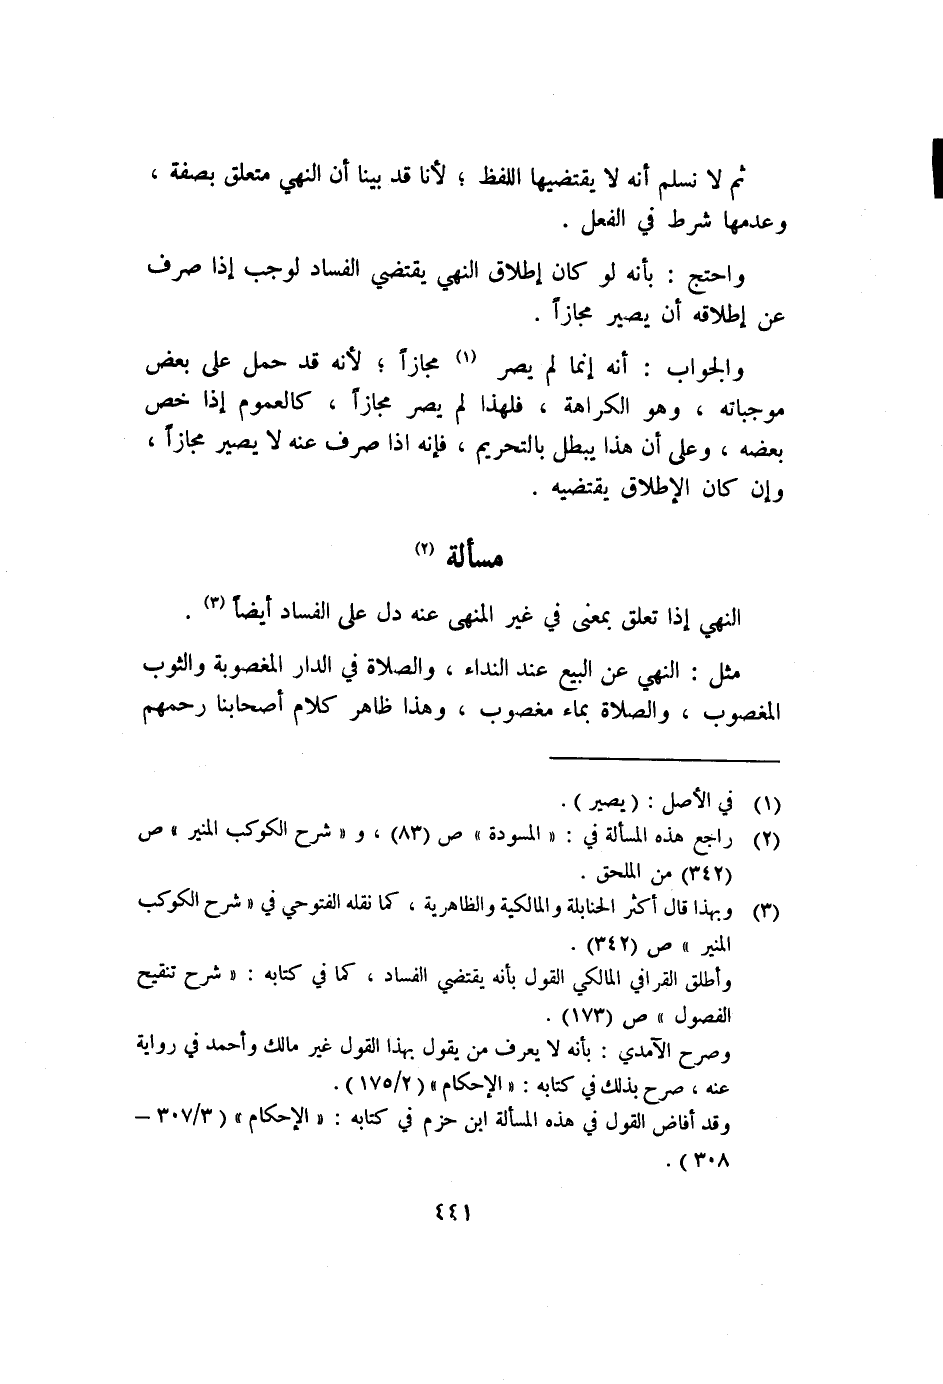 ثم لا نسلم أنه لا يقتضيها اللفظ ؛ لأنا قد بينا أن النهي متعلق بصفة ،
وعدمها شرط في الفعل .
واحتج : بأنه لو كان إطلاق النهي يقتضي الفساد لوجب إذا صرف
عن إطلاقه أن يصير مجازاً .
والجواب : أنه إنما لم يصر (١) مجازاً ؛ لأنه قد حمل على بعض
موجباته ، وهو الكراهة ، فلهذا لم يصر مجازاً ، كالعموم إذا خص
بعضه ، وعلى أن هذا يبطل بالتحريم ، فإنه اذا صرف عنه لا يصير مجازاً ،
وإن كان الإطلاق يقتضيه .
مسألة (٢)
النهي إذا تعلق بمعنى في غير المنهى عنه دل على الفساد أيضاً (٣) .
مثل : النهي عن البيع عند النداء ، والصلاة في الدار المغصوبة والثوب
المغصوب ، والصلاة بماء مغصوب ، وهذا ظاهر كلام أصحابنا رحمهم
(١) في الأصل : ( يصير ) .
(٢) راجع هذه المسألة في : « المسودة » ص (٨٣) ، و « شرح الكوكب المنير » ص
(٣٤٢) من الملحق .
(٣) وبهذا قال أكثر الحنابلة والمالكية والظاهرية ، كما نقله الفتوحي في « شرح الكوكب
المنير » ص (٣٤٢) .
وأطلق القرافي المالكي القول بأنه يقتضي الفساد ، كما في كتابه : « شرح تنقيح
الفصول » ص (١٧٣) .
وصرح الآمدي : بأنه لا يعرف من يقول بهذا القول غير مالك وأحمد في رواية
عنه ، صرح بذلك في كتابه : « الإحكام » ( ١٧٥/٢ ) .
وقد أفاض القول في هذه المسألة ابن حزم في كتابه : « الإحكام » ( ٣٠٧/٣ –
٣٠٨ ) .
٤٤١